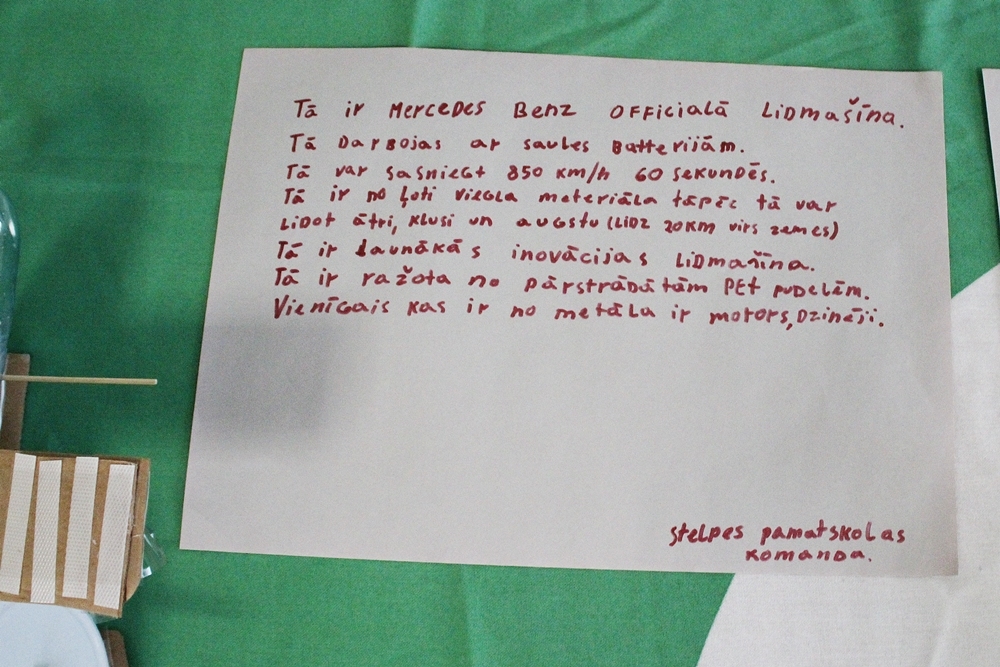 Tā ir Mercedes Benz officialā Lidmašīna.
Tā Darbojas ar saules Batterijām.
Tā var sasniegt 850 km/h 60 sekundēs.
Tā ir no ļoti viegla materiāla tāpēc tā var
Lidot ātri, klusi un augstu (Līdz 20km virs zemes)
Tā ir Jaunākās inovācijas Lidmašīna.
Tā ir ražota no pārstrādātām PET pudelēm.
Vienīgais kas ir no metāla ir motors, Dzinēji.
Stelpes pamatskolas
komanda.